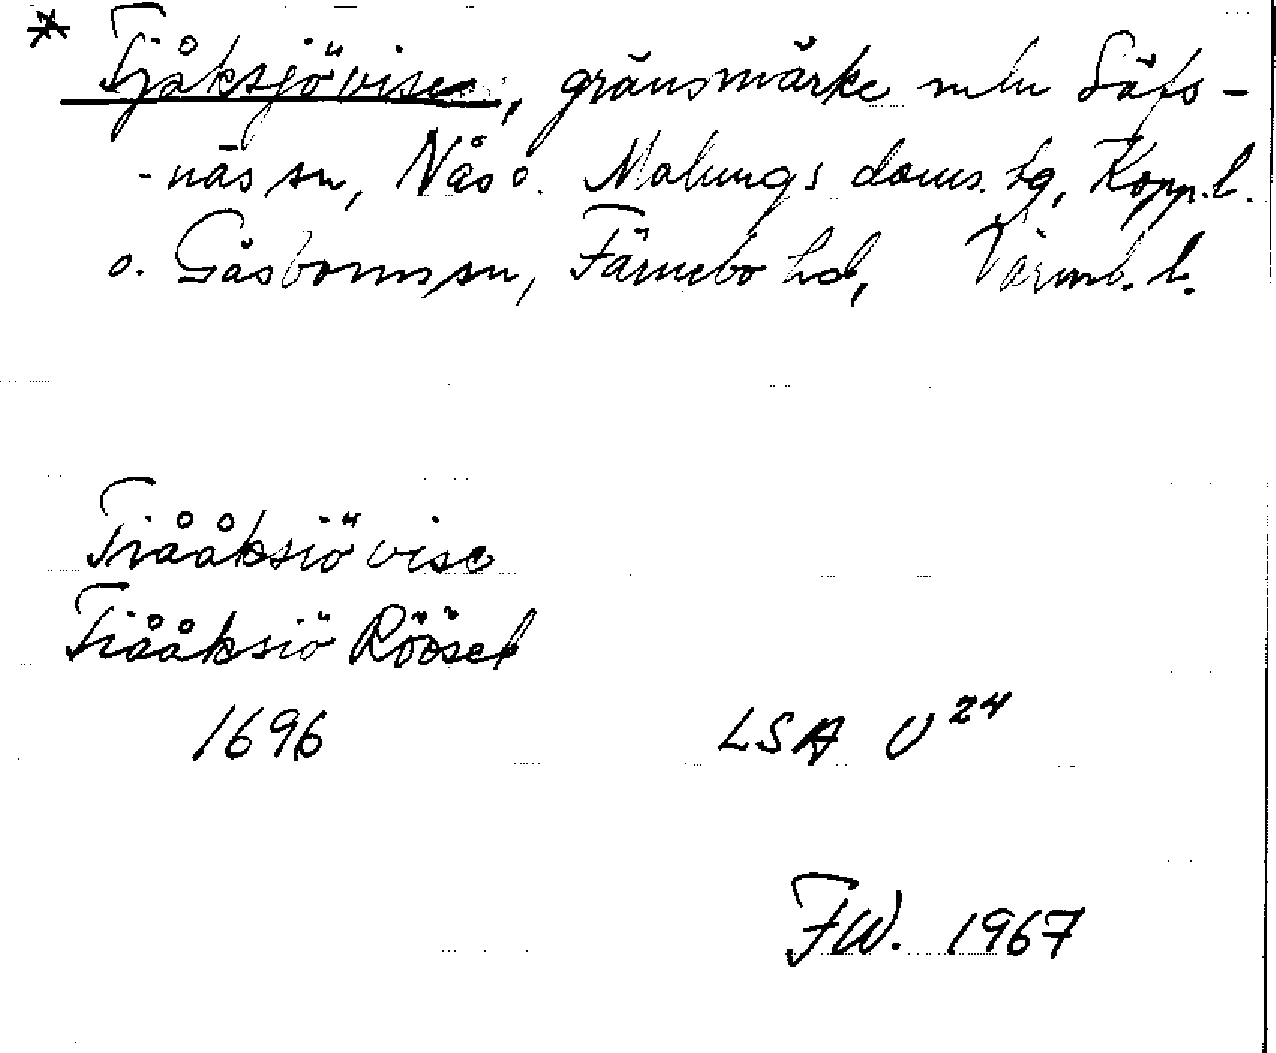 * Tjåksjövisa, gränsmärke mln Säfs-
-näs sn, Nås o. Malungs doms. hg, Kopp. l.
o. Gåsborns sn, Färnebo hd, Värml. l.
Tiååksiö vise
Tiååksiö Röösel
1696
LSA U 24
FW. 1967